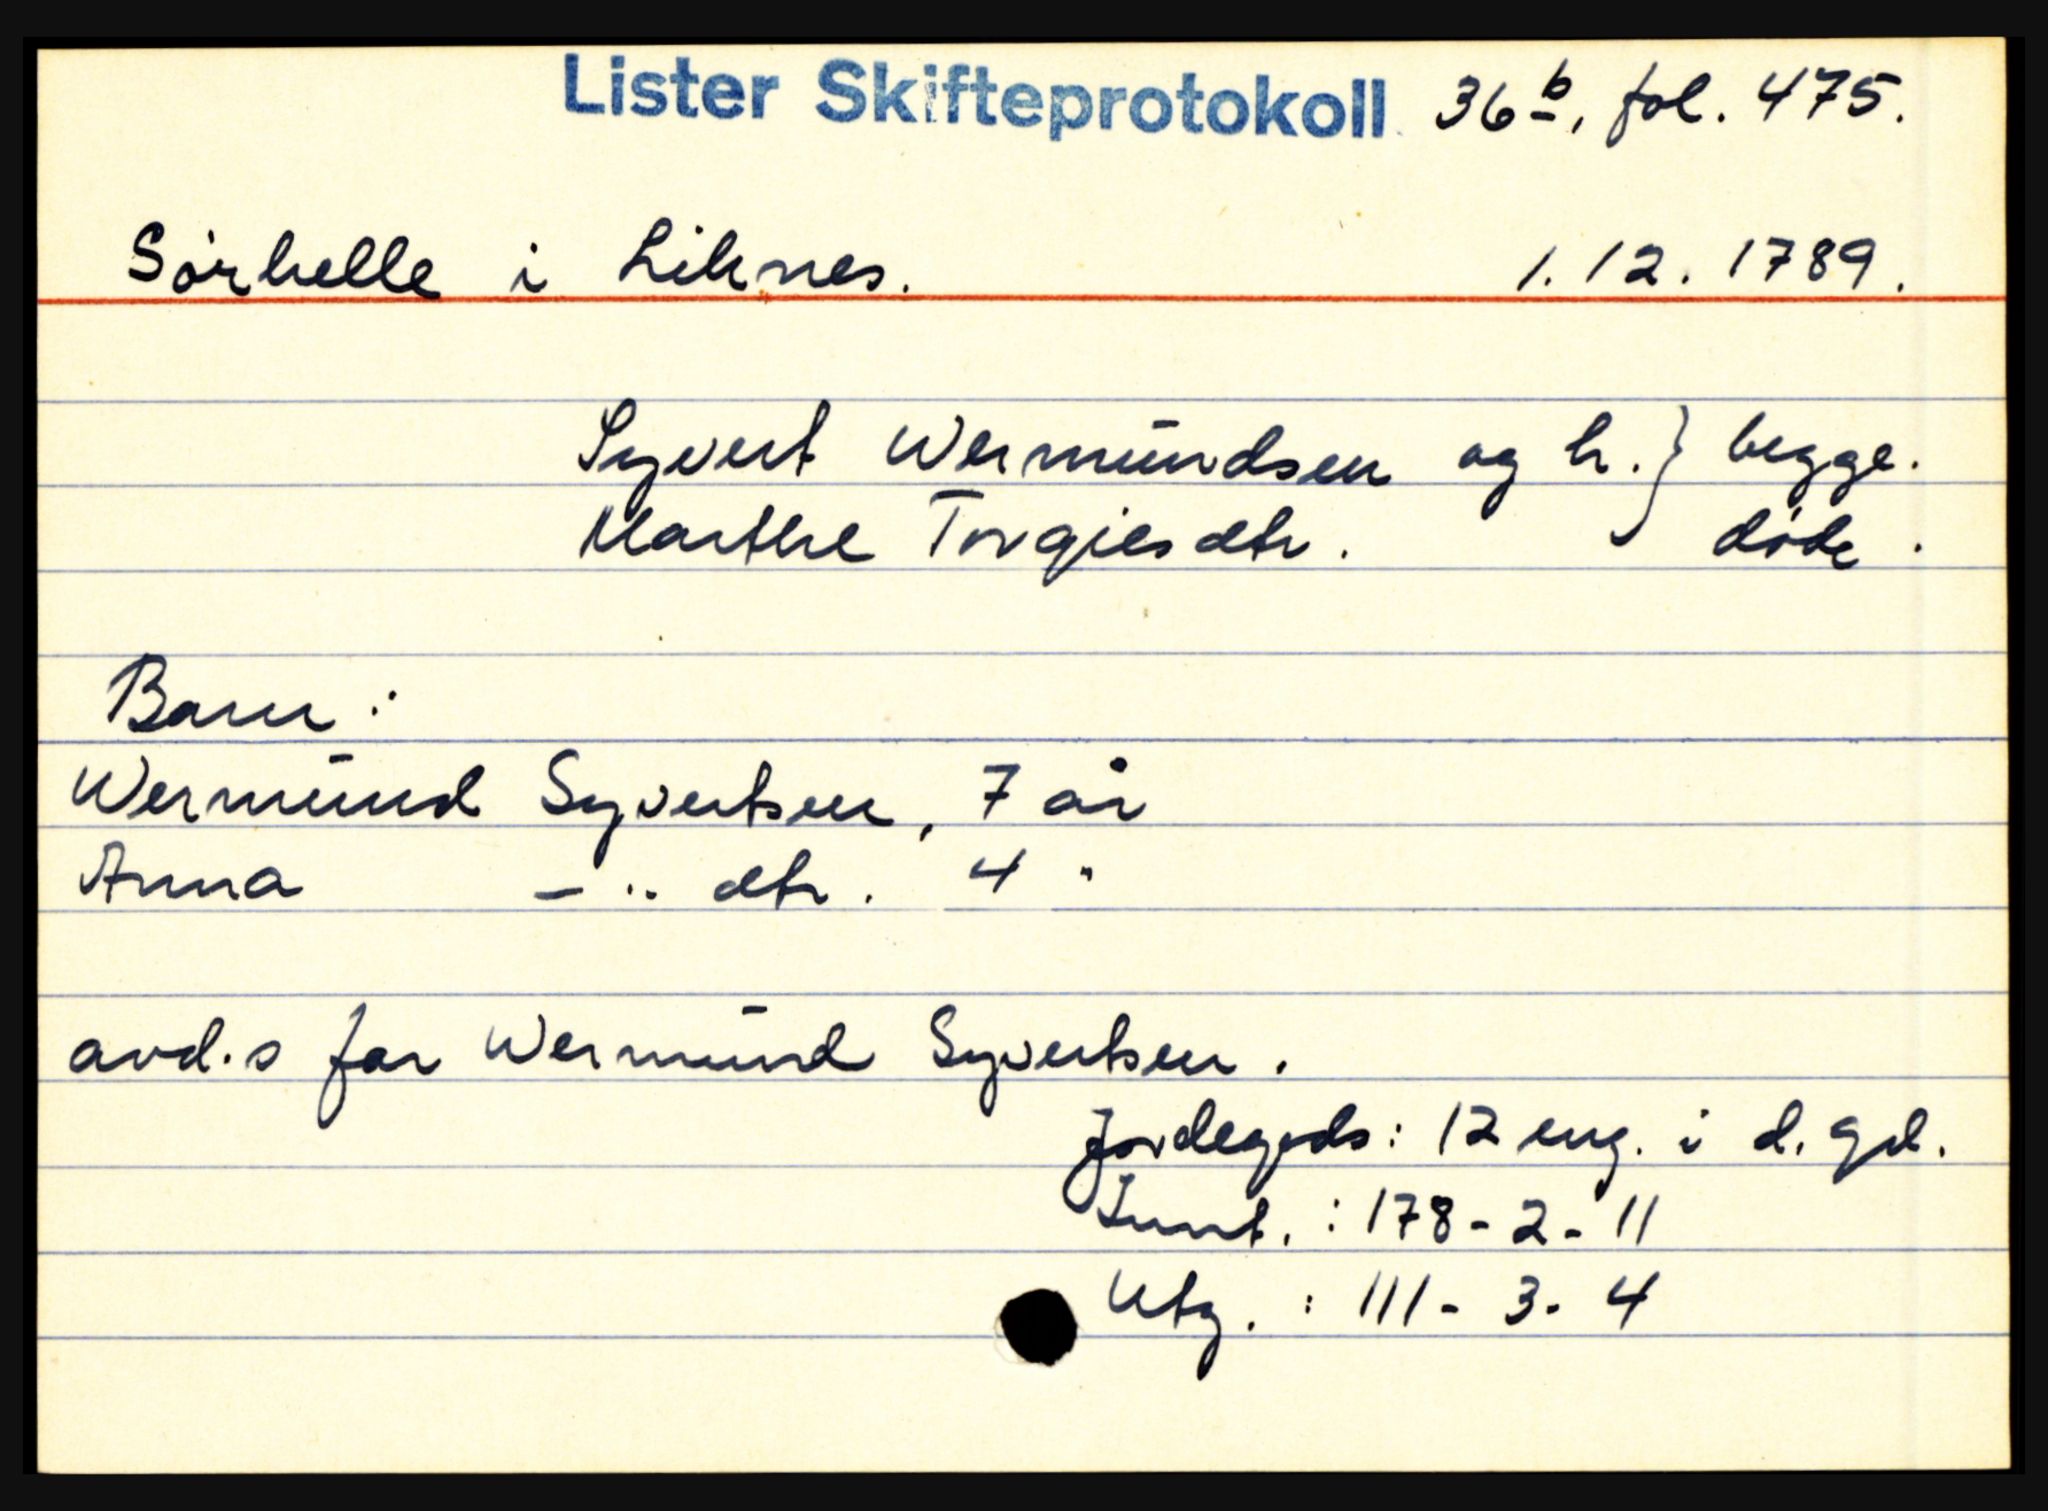 Lister Skifteprotokoll 36b, fol. 475.
Sørhelle i Liknes. 1.12.1789.
Syvert Wermundsen og h. } begge.
Marthe Torgiesdtr. døde.
Barn:
Wermund Syvertsen, 7 år
Anna — " dtr. 4 "
avd.s far Wermund Syvertsen.
Jordegods: 12 eng. i d. gd.
Innt. : 178-2-11
Utg. : 111-3-4